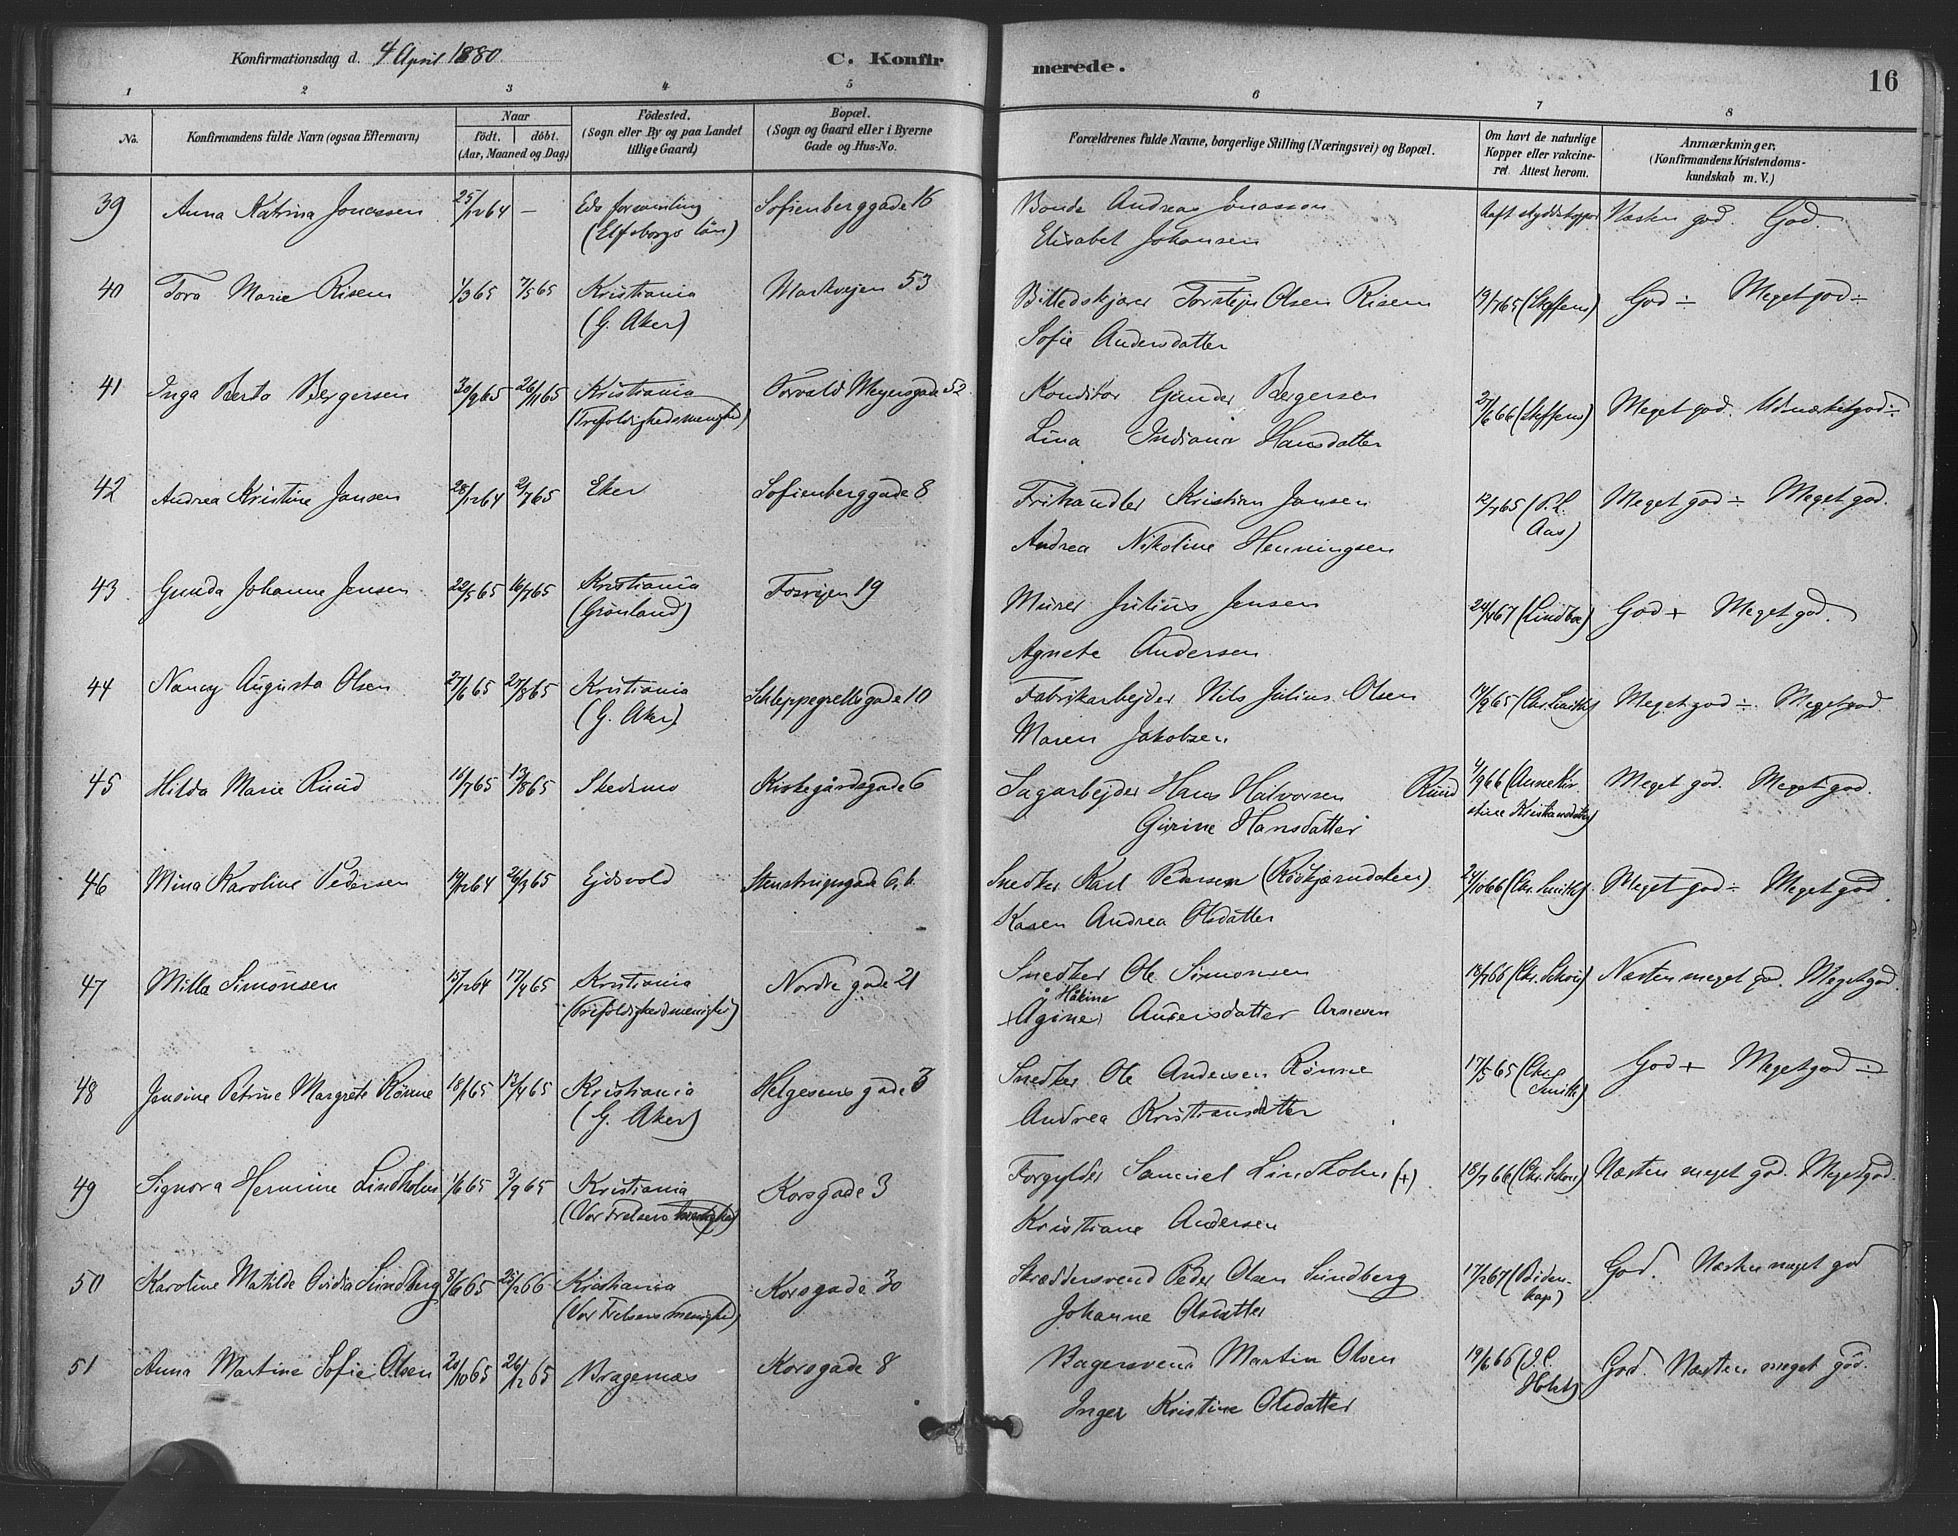 Konfirmationsdag d. 4 April 1880. C. Konfirmerede. 16
1 2 3 4 5 6 7 8
No. Konfirmandens fulde Navn (ogsaa Efternavn) Naar født. døbt. (Aar, Maaned og Dag) Fødested. (Sogn eller By og paa Landet tillige Gaard) Bopæl. (Sogn og Gaard eller i Byerne Gade og Hus-No. Forældrenes fulde Navne, borgerlige Stilling (Næringsvei) og Bopæl. Om havt de naturlige Kopper eller vakcineret. Attest herom. Anmærkninger. (Konfirmandens Kristendomskundskab m. V.)
39 Anna Katrina Jonassen 25/12 64 — Eds forsamling Sofienberggade 16 Bonde Andreas Jonasson haft skyddskoppor Næsten god. God.
(Elfsborgs län) Elisabet Johansen
40 Tora Marie Risem 1/3 65 7/5 65 Kristiania Markvejen 53 Billedskjærer Torstejn Olsen Risem 19/7 65 (Steffens) God ÷ Meget god ÷
(G. Aker) Sofie Andersdatter
41 Inga Berta Bergersen 30/9 65 26/11 65 Kristiania Torvald Meyersgade 52 Konditor Gunder Bergersen 27/6 66 (Steffens) Meget god. Udmærket god ÷
(Trefoldighedsmenighed) Lina Indiana Hansdatter
42 Andrea Kristine Jansen 28/12 64 2/7 65 Eker Sofienberggade 8 Frihandler Kristian Jansen 12/7 65 (P. L. Meget god ÷ Meget god.
Andrea Nikoline Henningsen Aas)
43 Gunda Johanne Jensen 22/5 65 16/7 65 Kristiania Fosvejen 19 Murer Julius Jensen 24/4 67 (Lindboe) God + Meget god.
(Grønland) Agnete Andersen
44 Nancy Augusta Olsen 27/6 65 27/8 65 Kristiania Schleppegrellsgade 10 Fabrikarbejder Nils Julius Olsen 14/9 65 (Chr. Smith) Meget god ÷ Meget god.
(G. Aker) Maren Jakobsen
45 Hilda Marie Ruud 16/7 65 13/8 65 Skedsmo Kirkegårdsgade 6 Sagarbejder Hans Halvorsen Ruud 4/9 66 (Anne Kir- Meget god. Meget god.
Gurine Hansdatter stine Kristiansdatter)
46 Mina Karoline Pedersen 19/12 64 26/3 65 Ejdsvold Stenstrupsgade 6, b Snedker Karl Pedersen (Rødkjærndalen) 24/10 66 (Chr. Smith). Meget god ÷ Meget god.
Karen Andrea Olsdatter
47 Milla Simonsen 15/12 64 17/4 65 Kristiania Nordre gade 21 Snedker Ole Simonsen 18/7 66 (Chr. Schou) Næsten meget god. Meget god.
(Trefoldighedsmenighed) (Agine) Håkine Andersdatter Arnesen
48 Jensine Petrine Margrete Rønne 18/1 65 17/4 65 Kristiania Helgesens gade 3 Snedker Ole Andersen Rønne 17/5 65 (Chr. God + Meget god ÷
(G. Aker) Andrea Kristiansdatter Smith)
49 Signora Hermine Lindholm 1/6 65 3/9 65 Kristiania Korsgade 3 Forgylder Samuel Lindholm (+) 18/7 66 (Chr. Schou) Næsten meget god. Meget god.
(Vor Frelsers menighed) Kristiane Andersen
50 Karoline Matilde Ovidia Sundberg 8/6 65 25/2 66 Kristiania Korsgade 30 Skræddersvend Peder Olsen Sundberg 17/2 67 (Biden- God. Næsten meget god
(Vor Frelsers menighed) Johanne Olsdatter kap)
51 Anna Martine Sofie Olsen 20/10 65 26/12 65 Bragernæs Korsgade 8 Bagersvend Martin Olsen 19/6 66 (J. C. God. Næsten meget god.
Inger Kristine Olsdatter Holst)